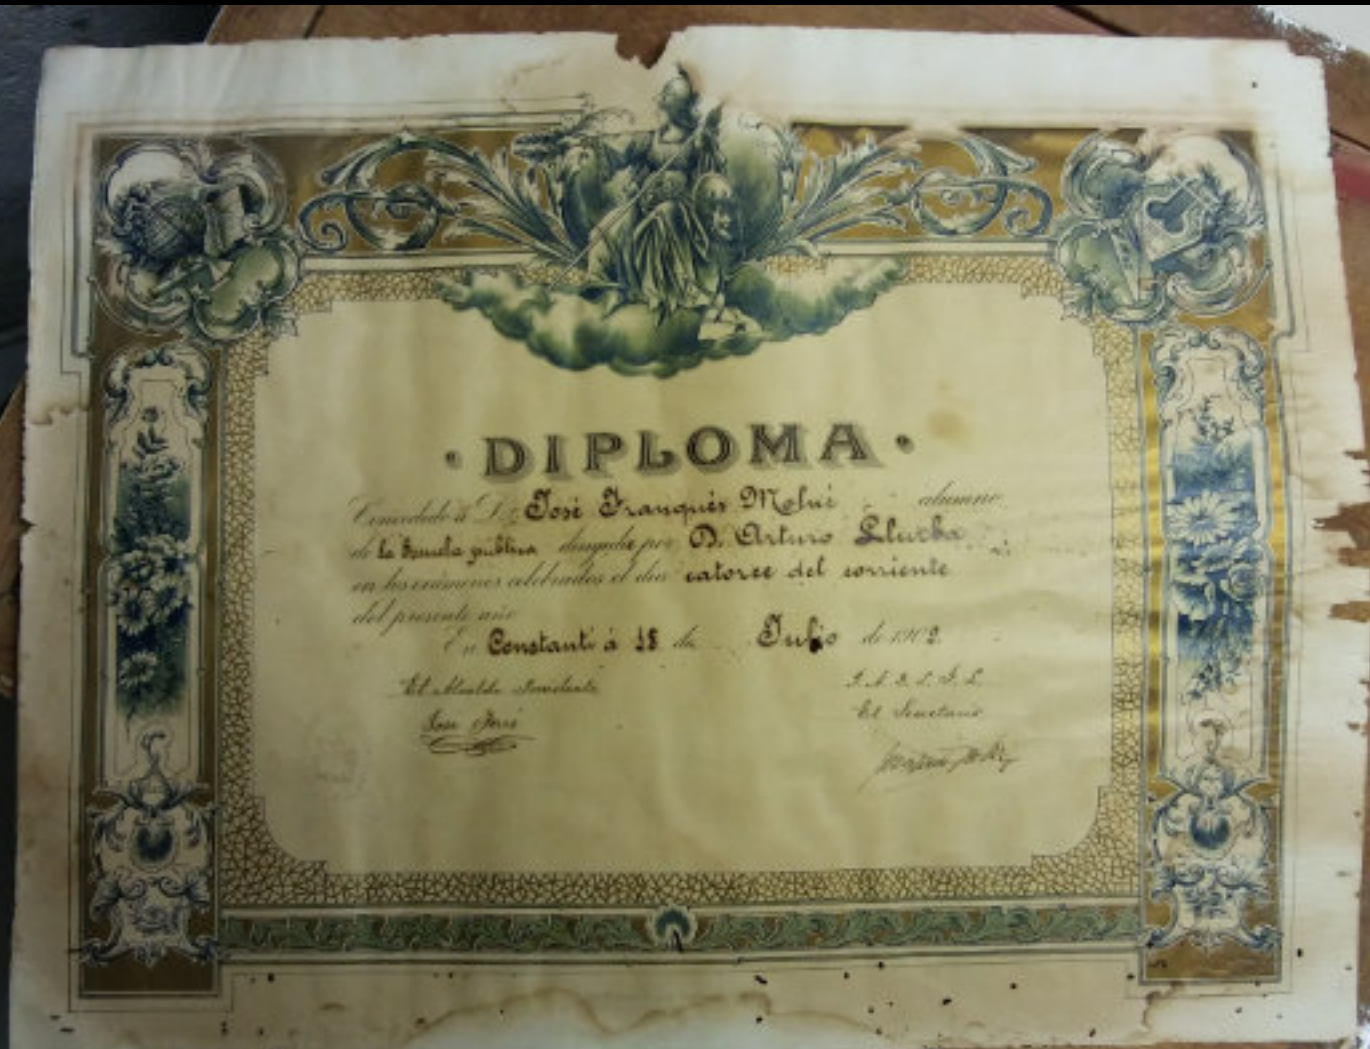 · DIPLOMA ·
Concedido á D. José Franqués Molné alumno
de la Escuela pública dirigida por D. Arturo
en los exámenes celebrados el dia catorce del corriente
del presente año
En Constantí á 18 de Julio de 1902.
El Alcalde Presidente
El Secretario
José Ferré